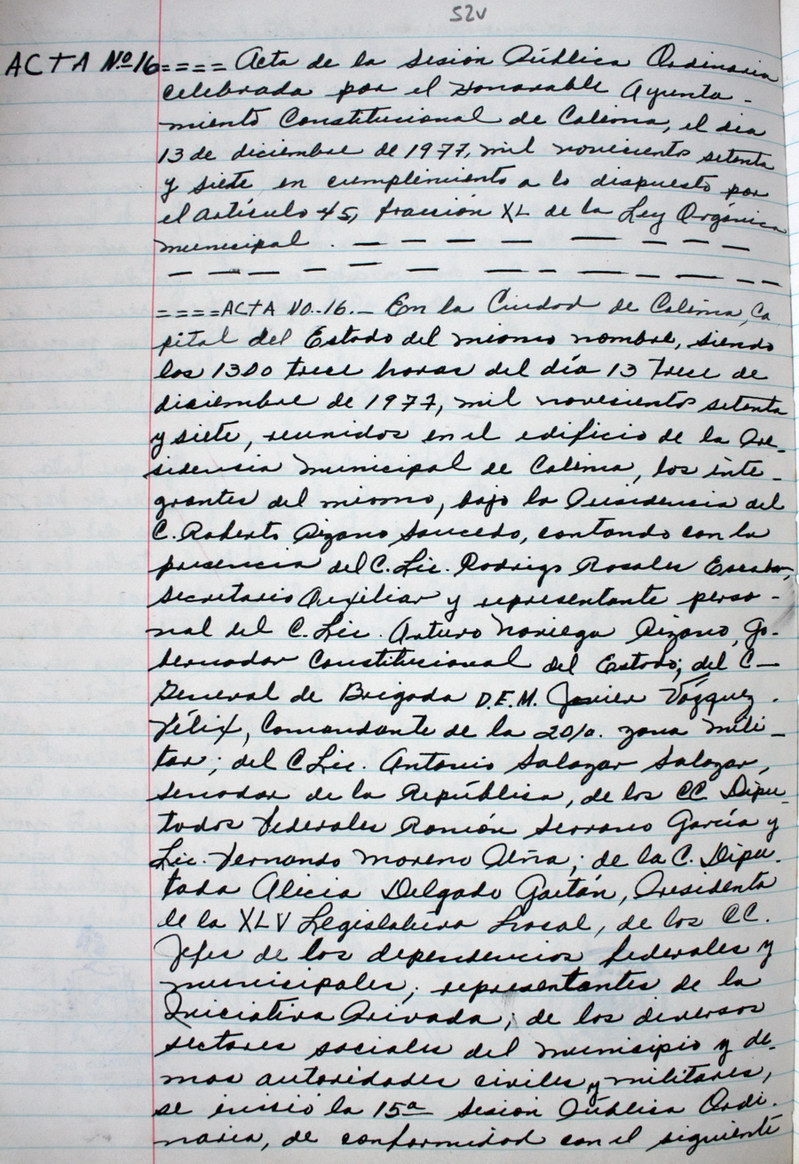 52v
ACTA Nº 16==== Acta de la Sesión Pública Ordinaria
celebrada por el Honorable Ayunta-
miento Constitucional de Colima, el día
13 de diciembre de 1977, mil novecientos setenta
y siete en cumplimiento a lo dispuesto por
el artículo 45, fracción XL de la Ley Orgánica
Municipal. — — — — — — — —
— — — — — — — — — — —
====ACTA NO.-16.- En la Ciudad de Colima, Ca
pital del Estado del mismo nombre, siendo
las 1300 trece horas del día 13 trece de
diciembre de 1977, mil novecientos setenta
y siete, reunidos en el edificio de la Pre-
sidencia Municipal de Colima, los inte-
grantes del mismo, bajo la Presidencia del
C. Roberto Pizano Saucedo, contando con la
presencia del C. Lic. Rodrigo Rosales
Secretario Auxiliar y representante perso-
nal del C. Lic. Arturo Noriega Pizano, Go-
bernador Constitucional del Estado; del C-
General de Brigada D.E.M. Javier Vázquez
Félix, Comandante de la 20/a. zona mili-
tar; del C Lic. Antonio Salazar Salazar,
Senador de la República, de los CC Dipu-
tados Federales Ramón Serrano García y
Lic. Fernando Moreno Peña; de la C. Dipu-
tada Alicia Delgado Gaitán, Presidenta
de la XLV Legislatura Local, de los CC.
Jefes de los dependencias federales y
municipales; representantes de la
Iniciativa Privada; de los diversos
sectores sociales del Municipio y de-
mas autoridades civiles y militares,
se inició la 15ª Sesión Pública Ordi-
naria, de conformidad con el siguiente